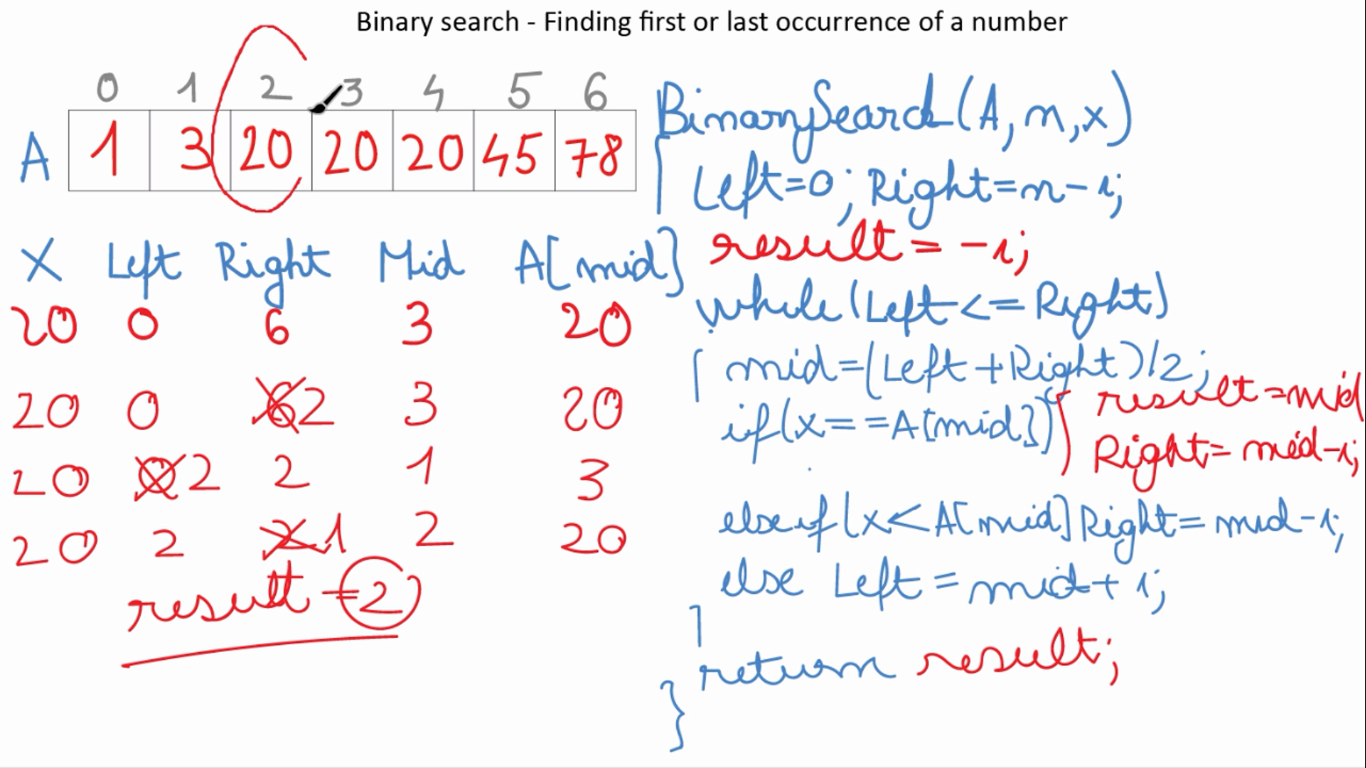 Binary search - Finding first or last occurrence of a number
0 1 2 3 4 5 6
A 1 3 20 20 20 45 78
X Left Right Mid A[mid]
20 0 6 3 20
20 0 6 2 3 20
20 0 2 2 1 3
20 2 2 1 2 20
result = 2
BinarySearch(A, n, x)
{
Left=0; Right=n-1;
result = -1;
while(Left<=Right)
{ mid=(Left+Right)/2;
if(x==A[mid]) { result=mid
Right=mid-1;
else if(x<A[mid] Right=mid-1;
else Left = mid+1;
}
return result;
}